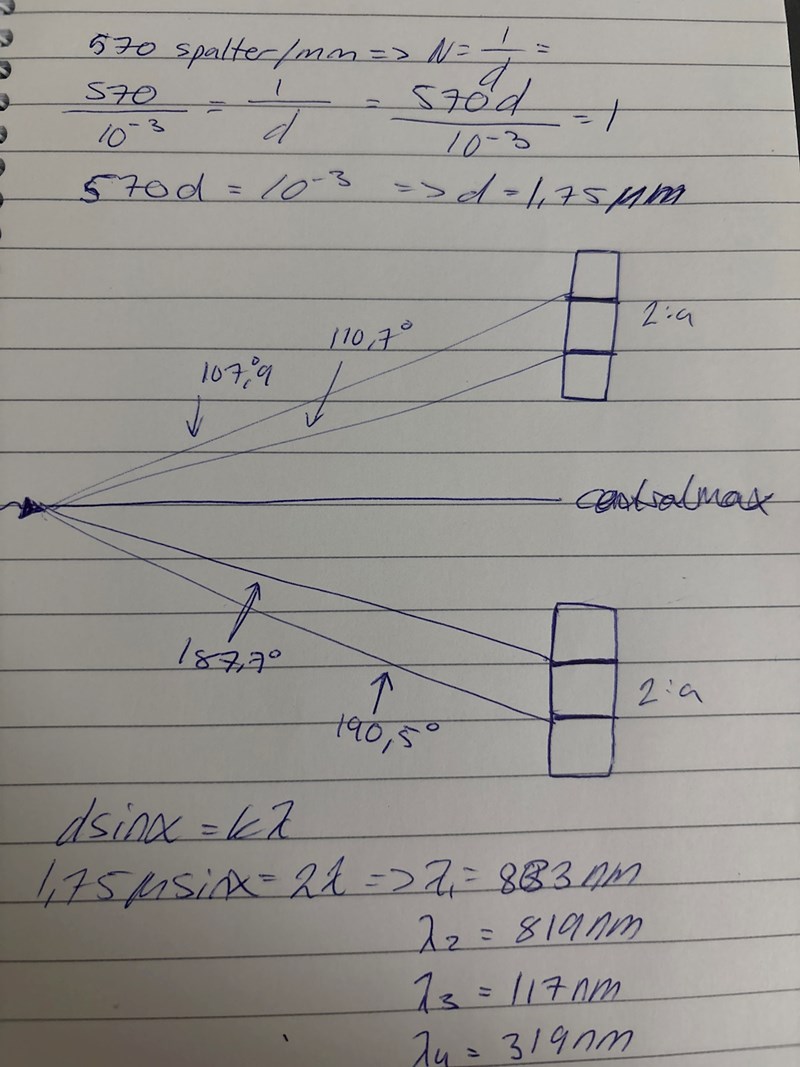 570 spalter/mm => N = 1/d =
570/10⁻³ = 1/d = 570d/10⁻³ = 1
570d = 10⁻³ => d = 1,75 μm
2:a
110,7°
107,°9
centralmax
187,7°
2:a
190,5°
dsinα = kλ
1,75 μsinα = 2λ => λ₁ = 883 nm
λ₂ = 819 nm
λ₃ = 117 nm
λ₄ = 319 nm